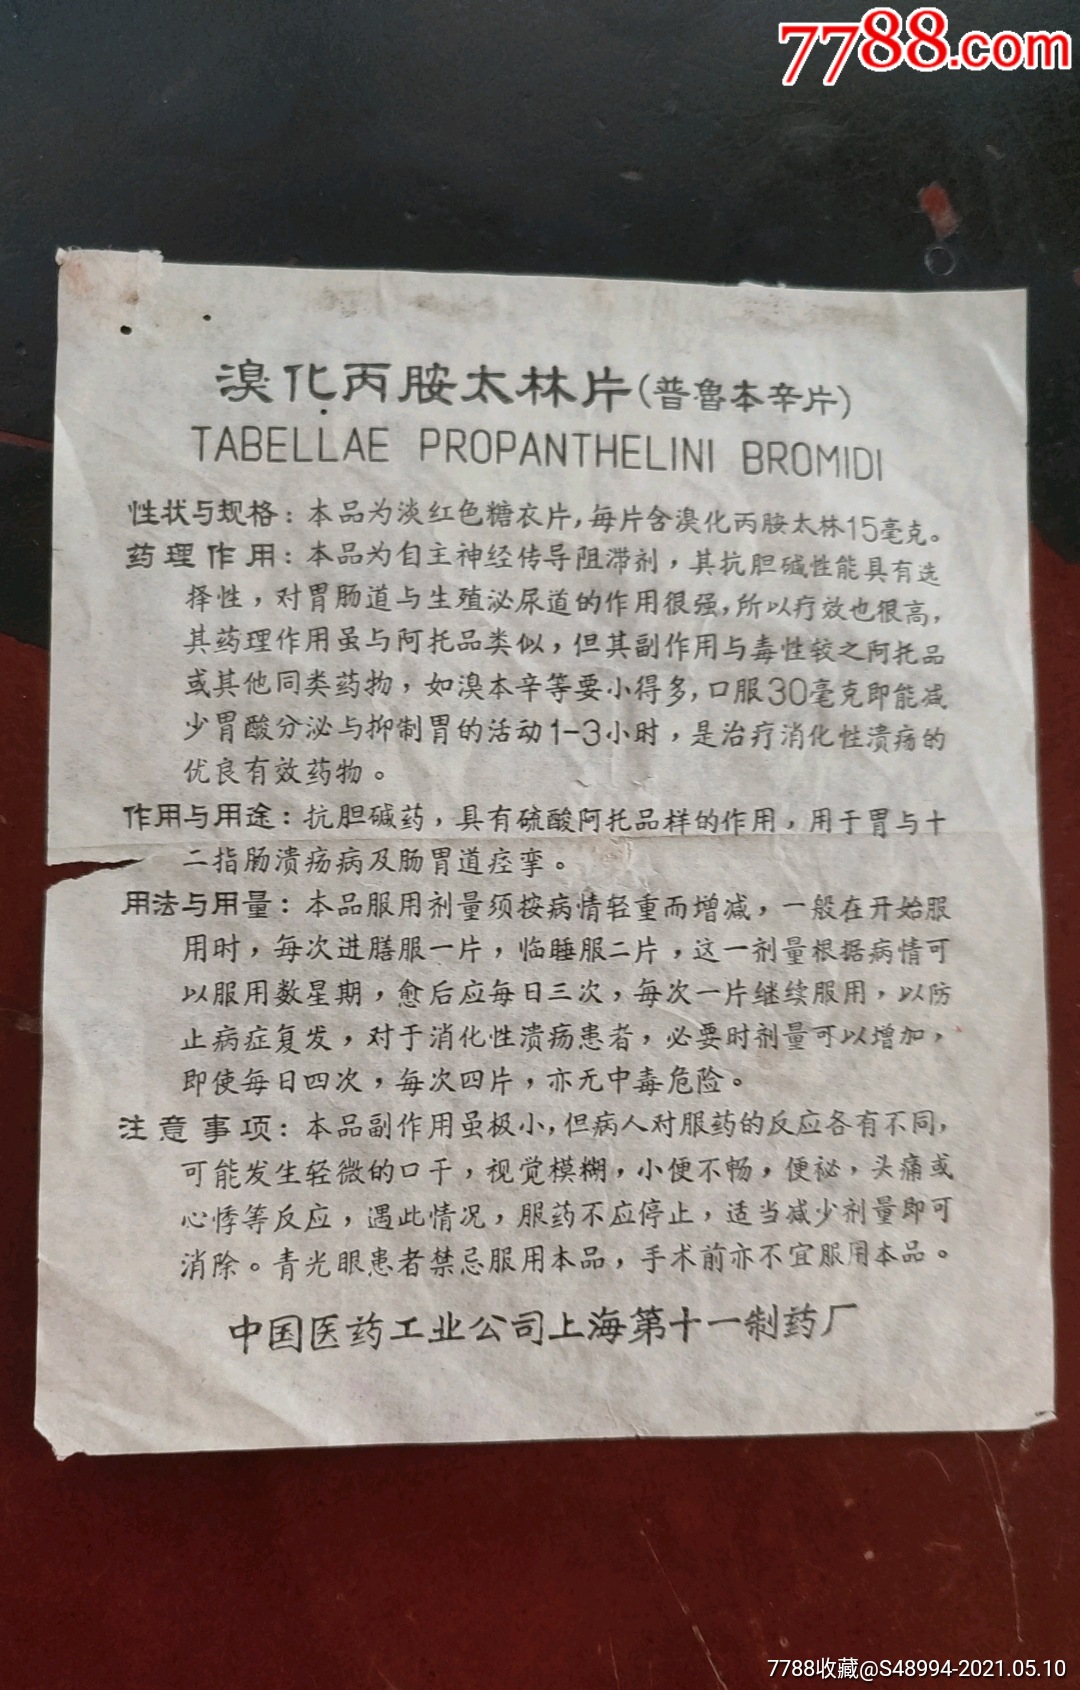 7788.com
溴化丙胺太林片(普鲁本辛片)
TABELLAE PROPANTHELINI BROMIDI
性状与规格：本品为淡红色糖衣片，每片含溴化丙胺太林15毫克。
药理作用：本品为自主神经传导阻滞剂，其抗胆碱性能具有选
择性，对胃肠道与生殖泌尿道的作用很强，所以疗效也很高，
其药理作用虽与阿托品类似，但其副作用与毒性较之阿托品
或其他同类药物，如溴本辛等要小得多，口服30毫克即能减
少胃酸分泌与抑制胃的活动1-3小时，是治疗消化性溃疡的
优良有效药物。
作用与用途：抗胆碱药，具有硫酸阿托品样的作用，用于胃与十
二指肠溃疡病及肠胃道痉挛。
用法与用量：本品服用剂量须按病情轻重而增减，一般在开始服
用时，每次进膳服一片，临睡服二片，这一剂量根据病情可
以服用数星期，愈后应每日三次，每次一片继续服用，以防
止病症复发，对于消化性溃疡患者，必要时剂量可以增加，
即使每日四次，每次四片，亦无中毒危险。
注意事项：本品副作用虽极小，但病人对服药的反应各有不同，
可能发生轻微的口干，视觉模糊，小便不畅，便祕，头痛或
心悸等反应，遇此情况，服药不应停止，适当减少剂量即可
消除。青光眼患者禁忌服用本品，手术前亦不宜服用本品。
中国医药工业公司上海第十一制药厂
7788收藏@S48994-2021.05.10